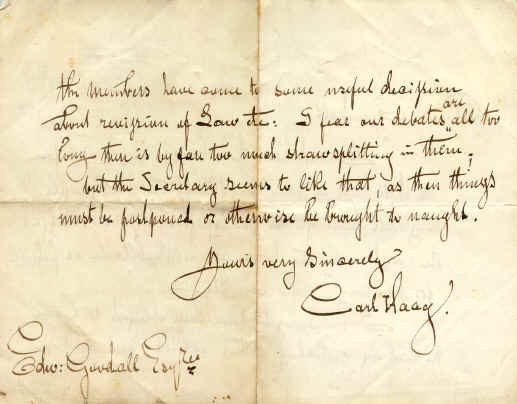 the members have come to some useful decission
about revission of Law etc: I fear our debates are all too
long there is by fare too much strawsplitting in them;
but the Secretary seems to like that, as then things
must be postponed or otherwise be brought to naught.
Yours very sincerely
Carl Haag.
Edw: Goodall Esqre